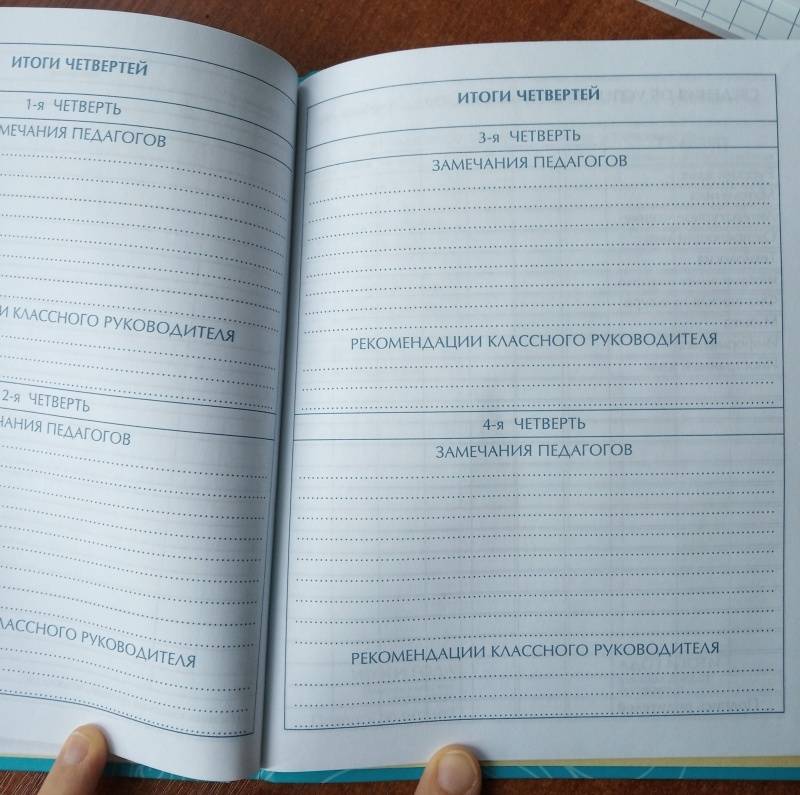 ИТОГИ ЧЕТВЕРТЕЙ
1-я ЧЕТВЕРТЬ
МЕЧАНИЯ ПЕДАГОГОВ
И КЛАССНОГО РУКОВОДИТЕЛЯ
2-я ЧЕТВЕРТЬ
ЧАНИЯ ПЕДАГОГОВ
ЛАССНОГО РУКОВОДИТЕЛЯ
ИТОГИ ЧЕТВЕРТЕЙ
3-я ЧЕТВЕРТЬ
ЗАМЕЧАНИЯ ПЕДАГОГОВ
РЕКОМЕНДАЦИИ КЛАССНОГО РУКОВОДИТЕЛЯ
4-я ЧЕТВЕРТЬ
ЗАМЕЧАНИЯ ПЕДАГОГОВ
РЕКОМЕНДАЦИИ КЛАССНОГО РУКОВОДИТЕЛЯ